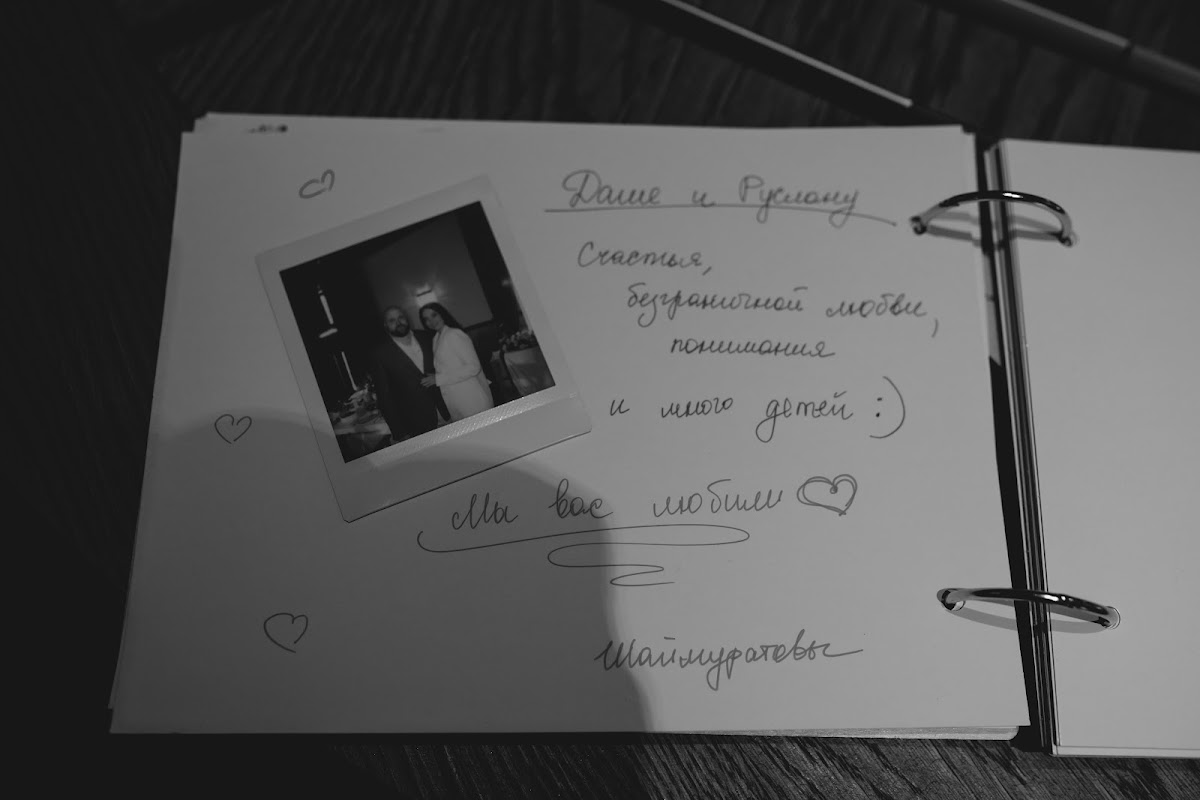 Даше и Руслану
Счастья,
безграничной любви,
понимания
и много детей :)
Мы вас любим
Шаймуратовы